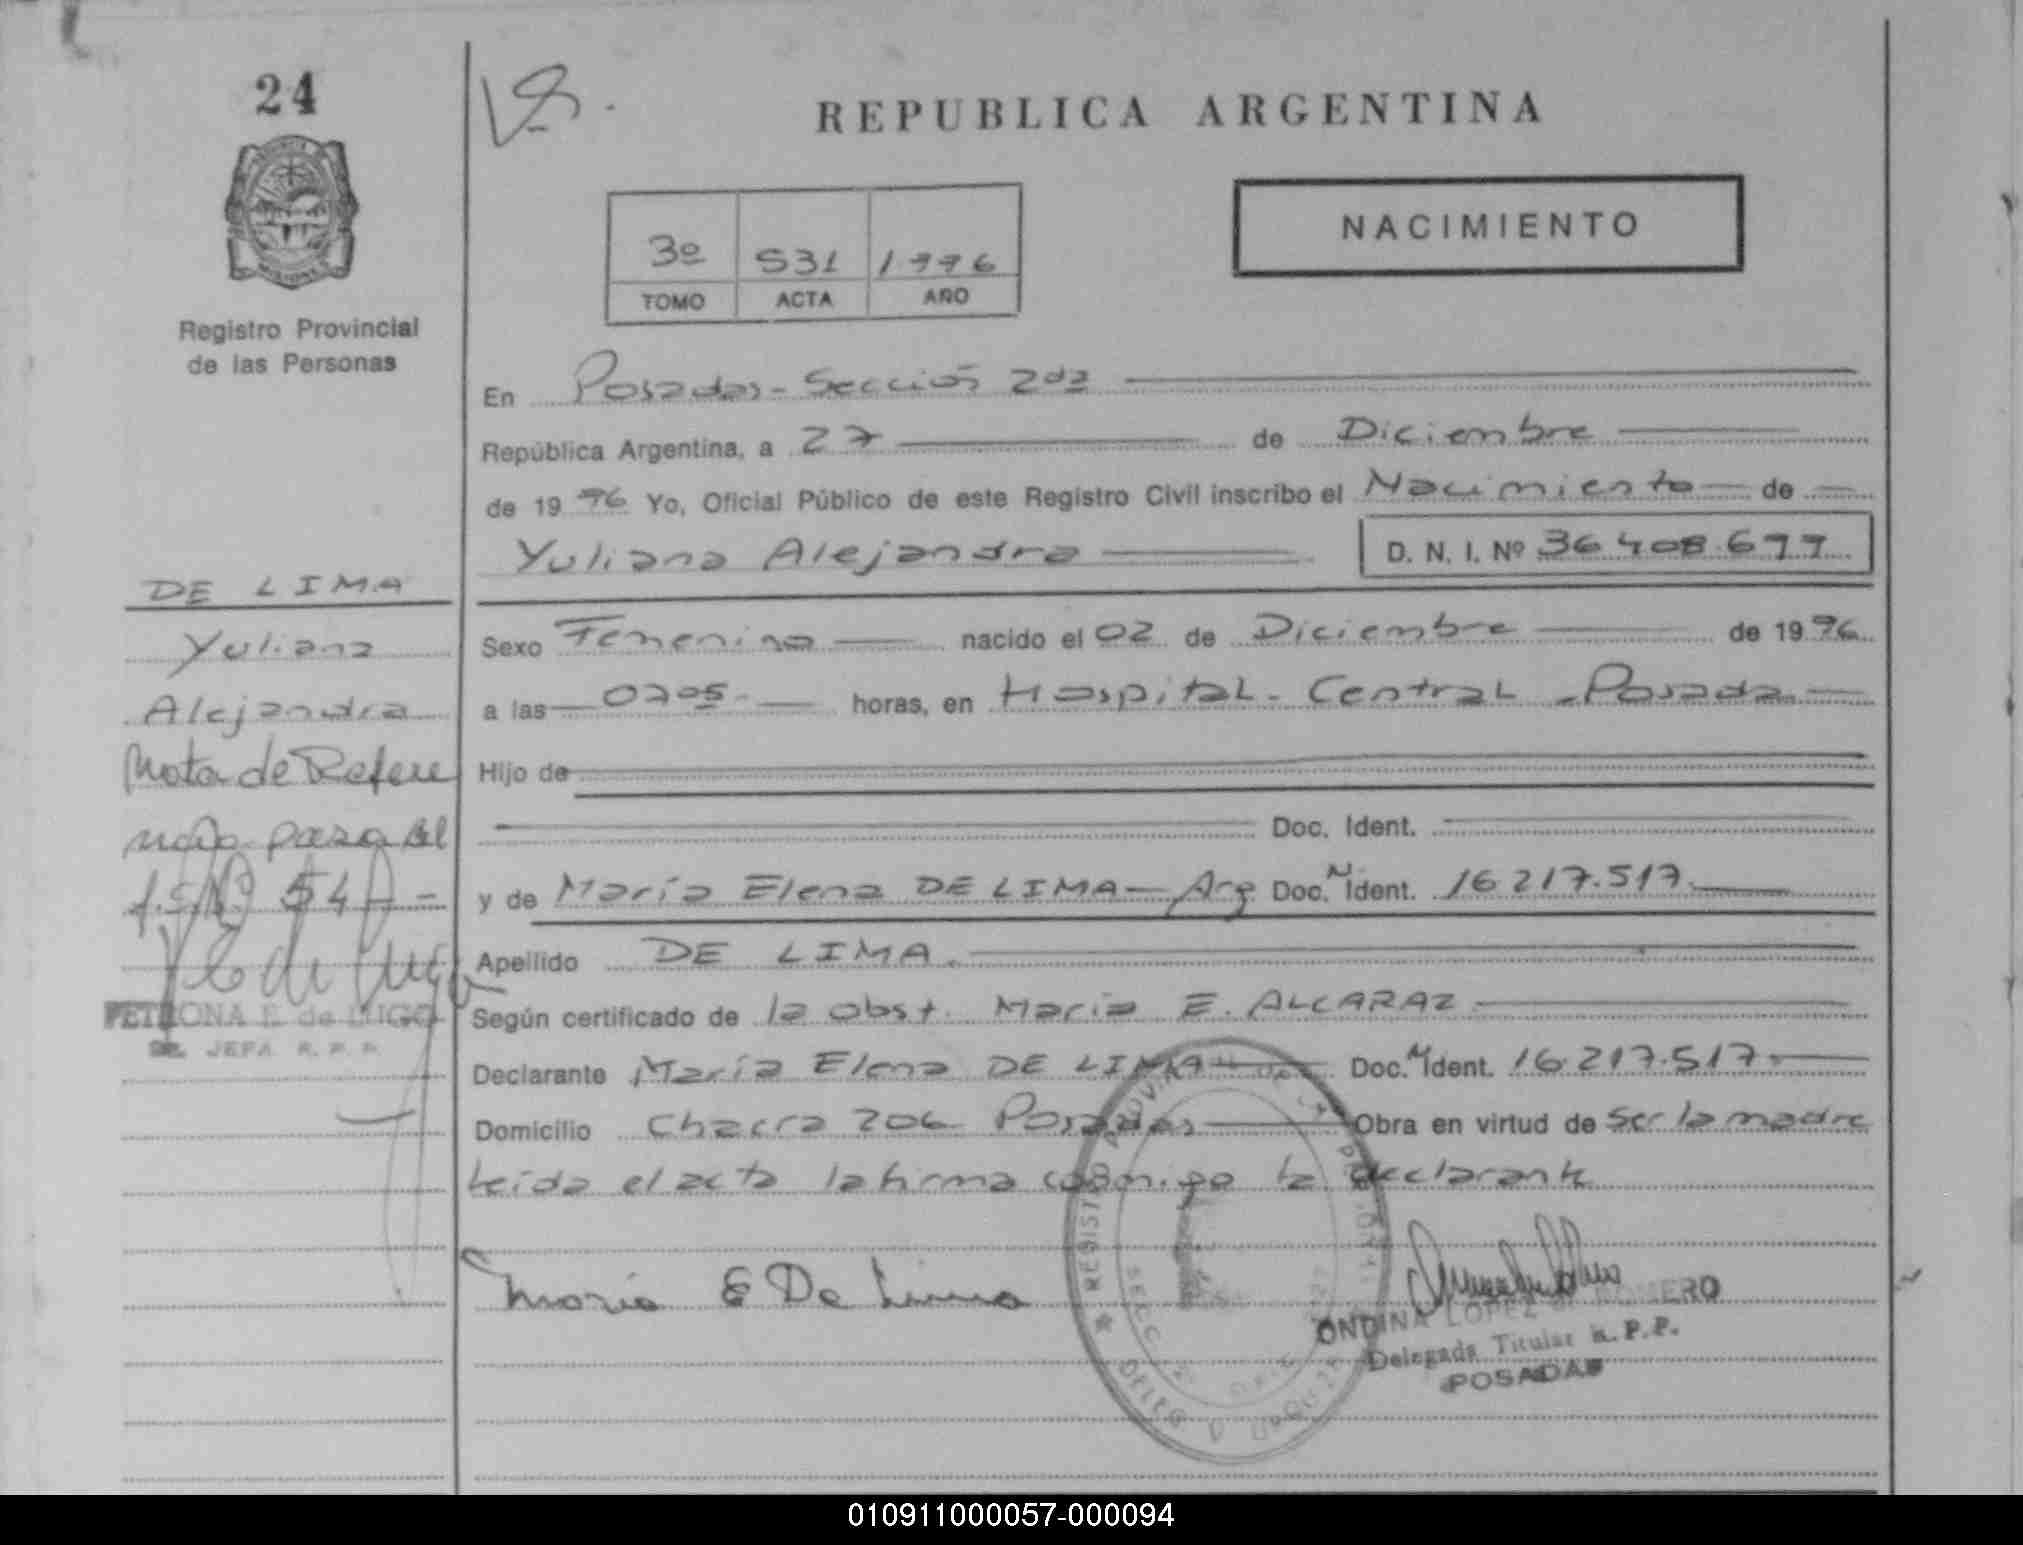 24
REPUBLICA ARGENTINA
NACIMIENTO
3º 531 1996
TOMO ACTA AÑO
Registro Provincial
de las Personas
En Posadas - Sección 2da
República Argentina, a 27 de Diciembre
de 19 96 Yo, Oficial Público de este Registro Civil inscribo el Nacimiento de
Yuliana Alejandra D. N. I. Nº 36.408.677
DE LIMA
Yuliana
Alejandra
Nota de Refere
ncia pasa al
54
PETRONA E. de LUGO
JEFA R. P. P.
Sexo Femenino nacido el 02 de Diciembre de 19 96
a las 0705 horas, en Hospital Central - Posadas
Hijo de
Doc. Ident.
y de María Elena DE LIMA - Arg Doc. N Ident. 16 217.517
Apellido DE LIMA.
Según certificado de la obst. María E. ALCARAZ
Declarante María Elena DE LIMA Doc. N Ident. 16.217.517
Domicilio Chacra 206 Posadas Obra en virtud de ser la madre
Leída el acta la firma conmigo la declarante
María E De Lima
ONDINA LOPEZ ROMERO
Delegada Titular R. P. P.
POSADAS
010911000057-000094